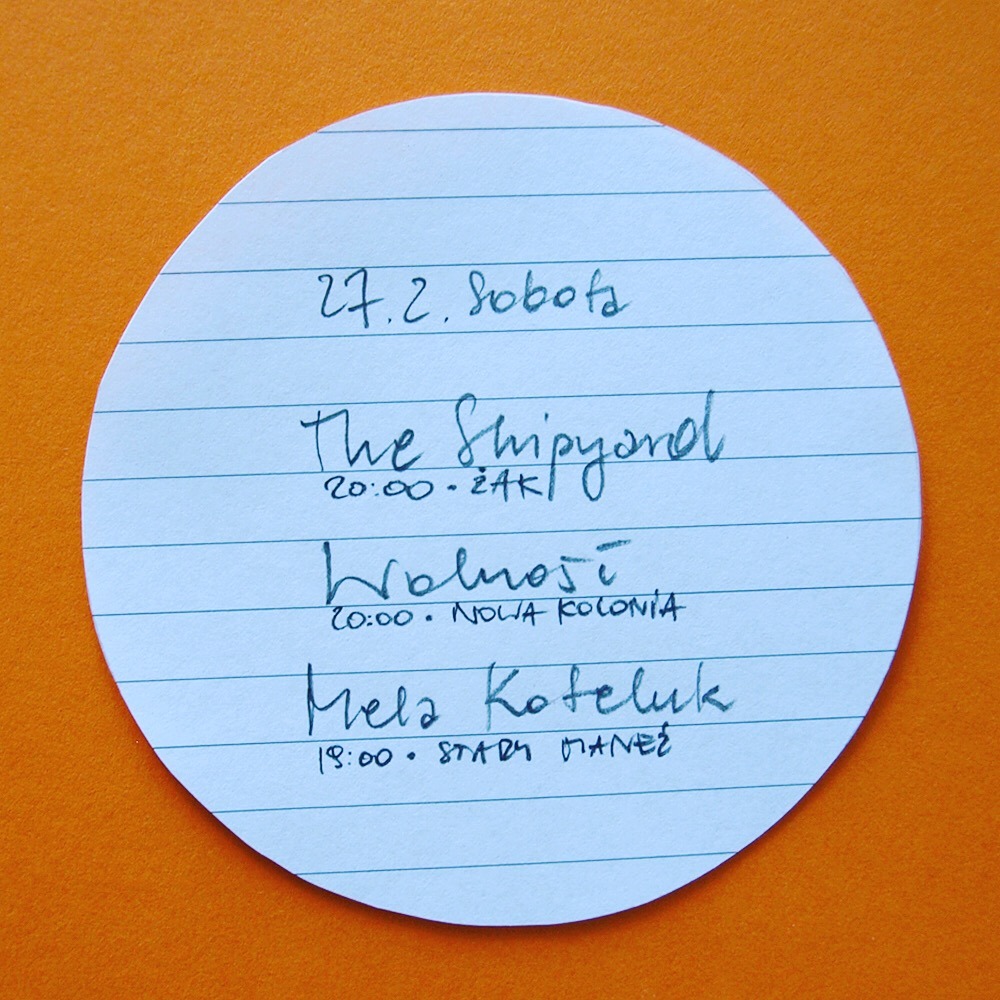 27.2. Sobota
The Shipyard
20:00 · ŻAK
Wolność
20:00 · NOWA KOLONIA
Mela Koteluk
19:00 · STARY MANEŻ